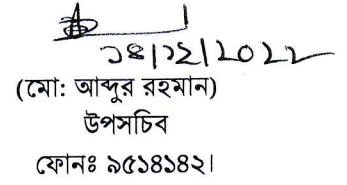 ১৪/১২/২০২২
(মো: আব্দুর রহমান)
উপসচিব
ফোনঃ ৯৫১৪১৪২।